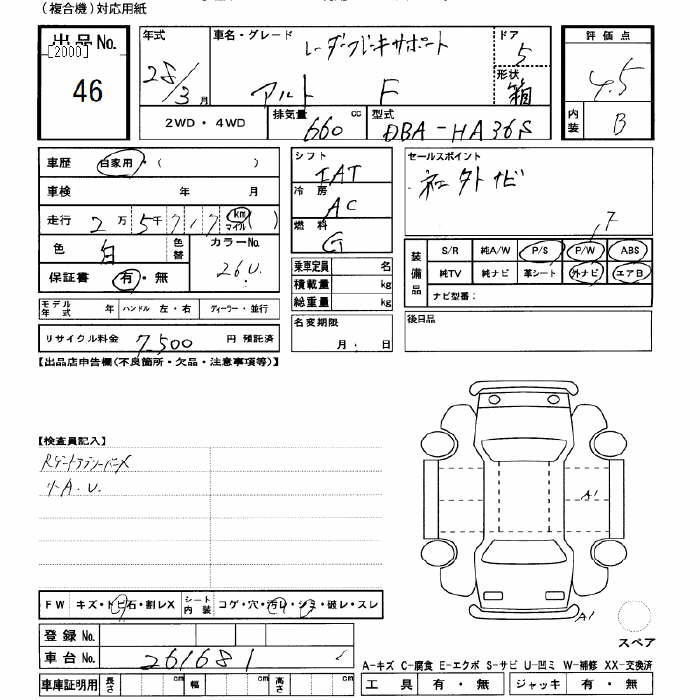 (複合機)対応用紙
出品No.
[2000]
46
年式
28/3月
車名・グレード
レーダーブレーキサポート
アルト F
ドア
5
形状
箱
評価点
4.5
内装
B
2WD・4WD
排気量
660 cc
型式
DBA-HA36S
車歴
自家用・( )
車検 年 月
走行
2万5千717 km マイル ( )
色
白
色替
カラーNo.
26U.
保証書
有・無
モデル年式 年
ハンドル 左・右
ディーラー・並行
リサイクル料金 7,500 円 預託済
シフト
IAT
冷房
AC
燃料
G
乗車定員 名
積載量 kg
総重量 kg
名変期限
月 日
セールスポイント
外ナビ
装備品
S/R 純A/W P/S P/W ABS
純TV 純ナビ 革シート 外ナビ エアB
ナビ型番:
後日品
【出品店申告欄(不良箇所・欠品・注意事項等)】
【検査員記入】
リ-A.U.
A1
A1
スペア
FW キズ・トビ石・割レX
シート内装 コゲ・穴・汚レ・シミ・破レ・スレ
登録No.
車台No. 261681
車庫証明用 長さ cm 幅 cm 高さ cm
A-キズ C-腐食 E-エクボ S-サビ U-凹ミ W-補修 XX-交換済
工具 有・無 ジャッキ 有・無